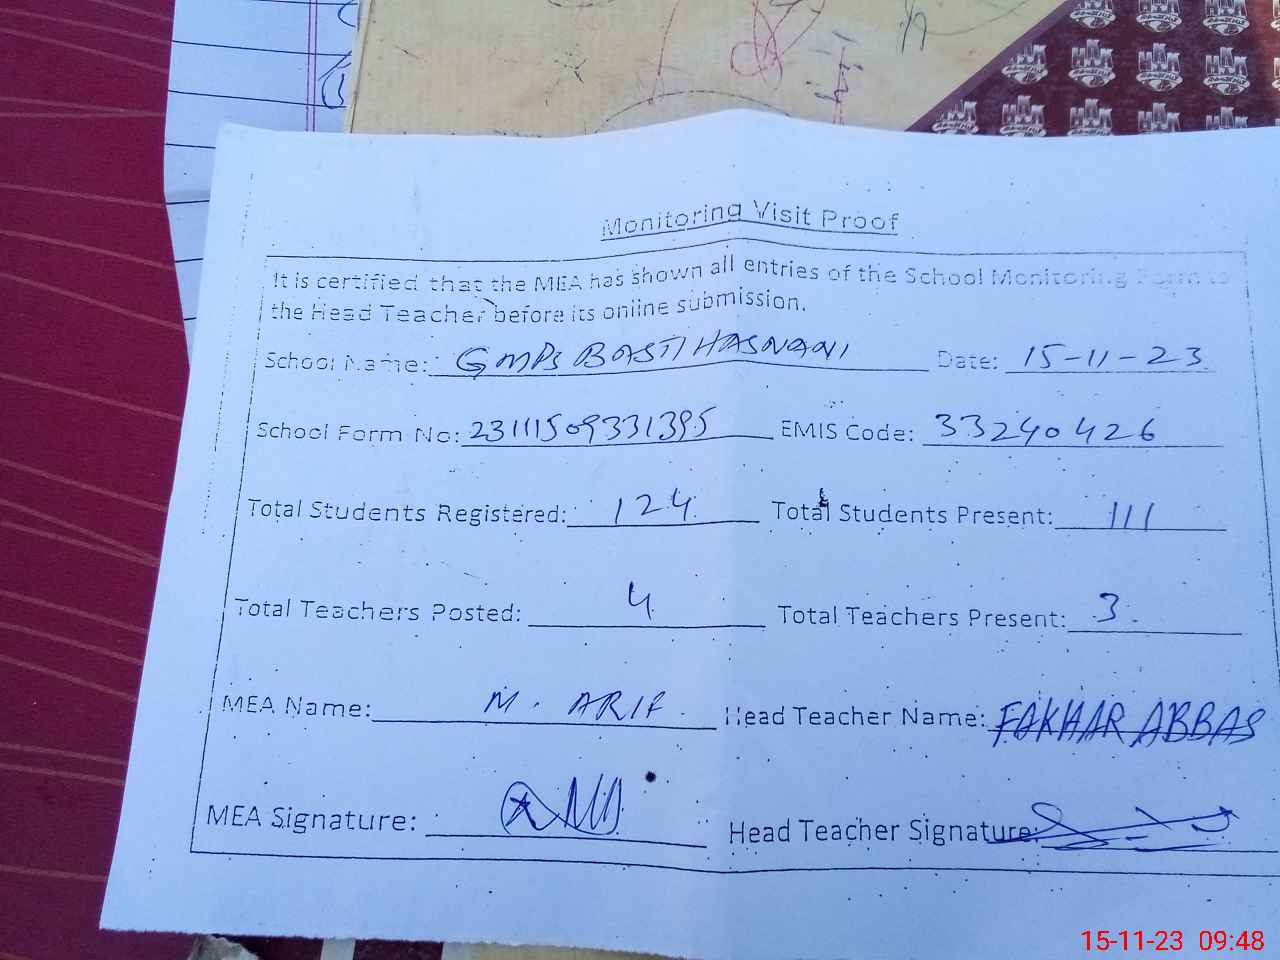 Monitoring Visit Proof
It is certified that the MEA has shown all entries of the School Monitoring Form to
the Head Teacher before its online submission.
School Name: GMPS BASTI HASNANI Date: 15-11-23
School Form No: 23111509331395 EMIS Code: 33240426
Total Students Registered: 124 Total Students Present: 111
Total Teachers Posted: 4 Total Teachers Present: 3
MEA Name: M. ARIF Head Teacher Name: FAKHAR ABBAS
MEA Signature: Head Teacher Signature:
15-11-23 09:48